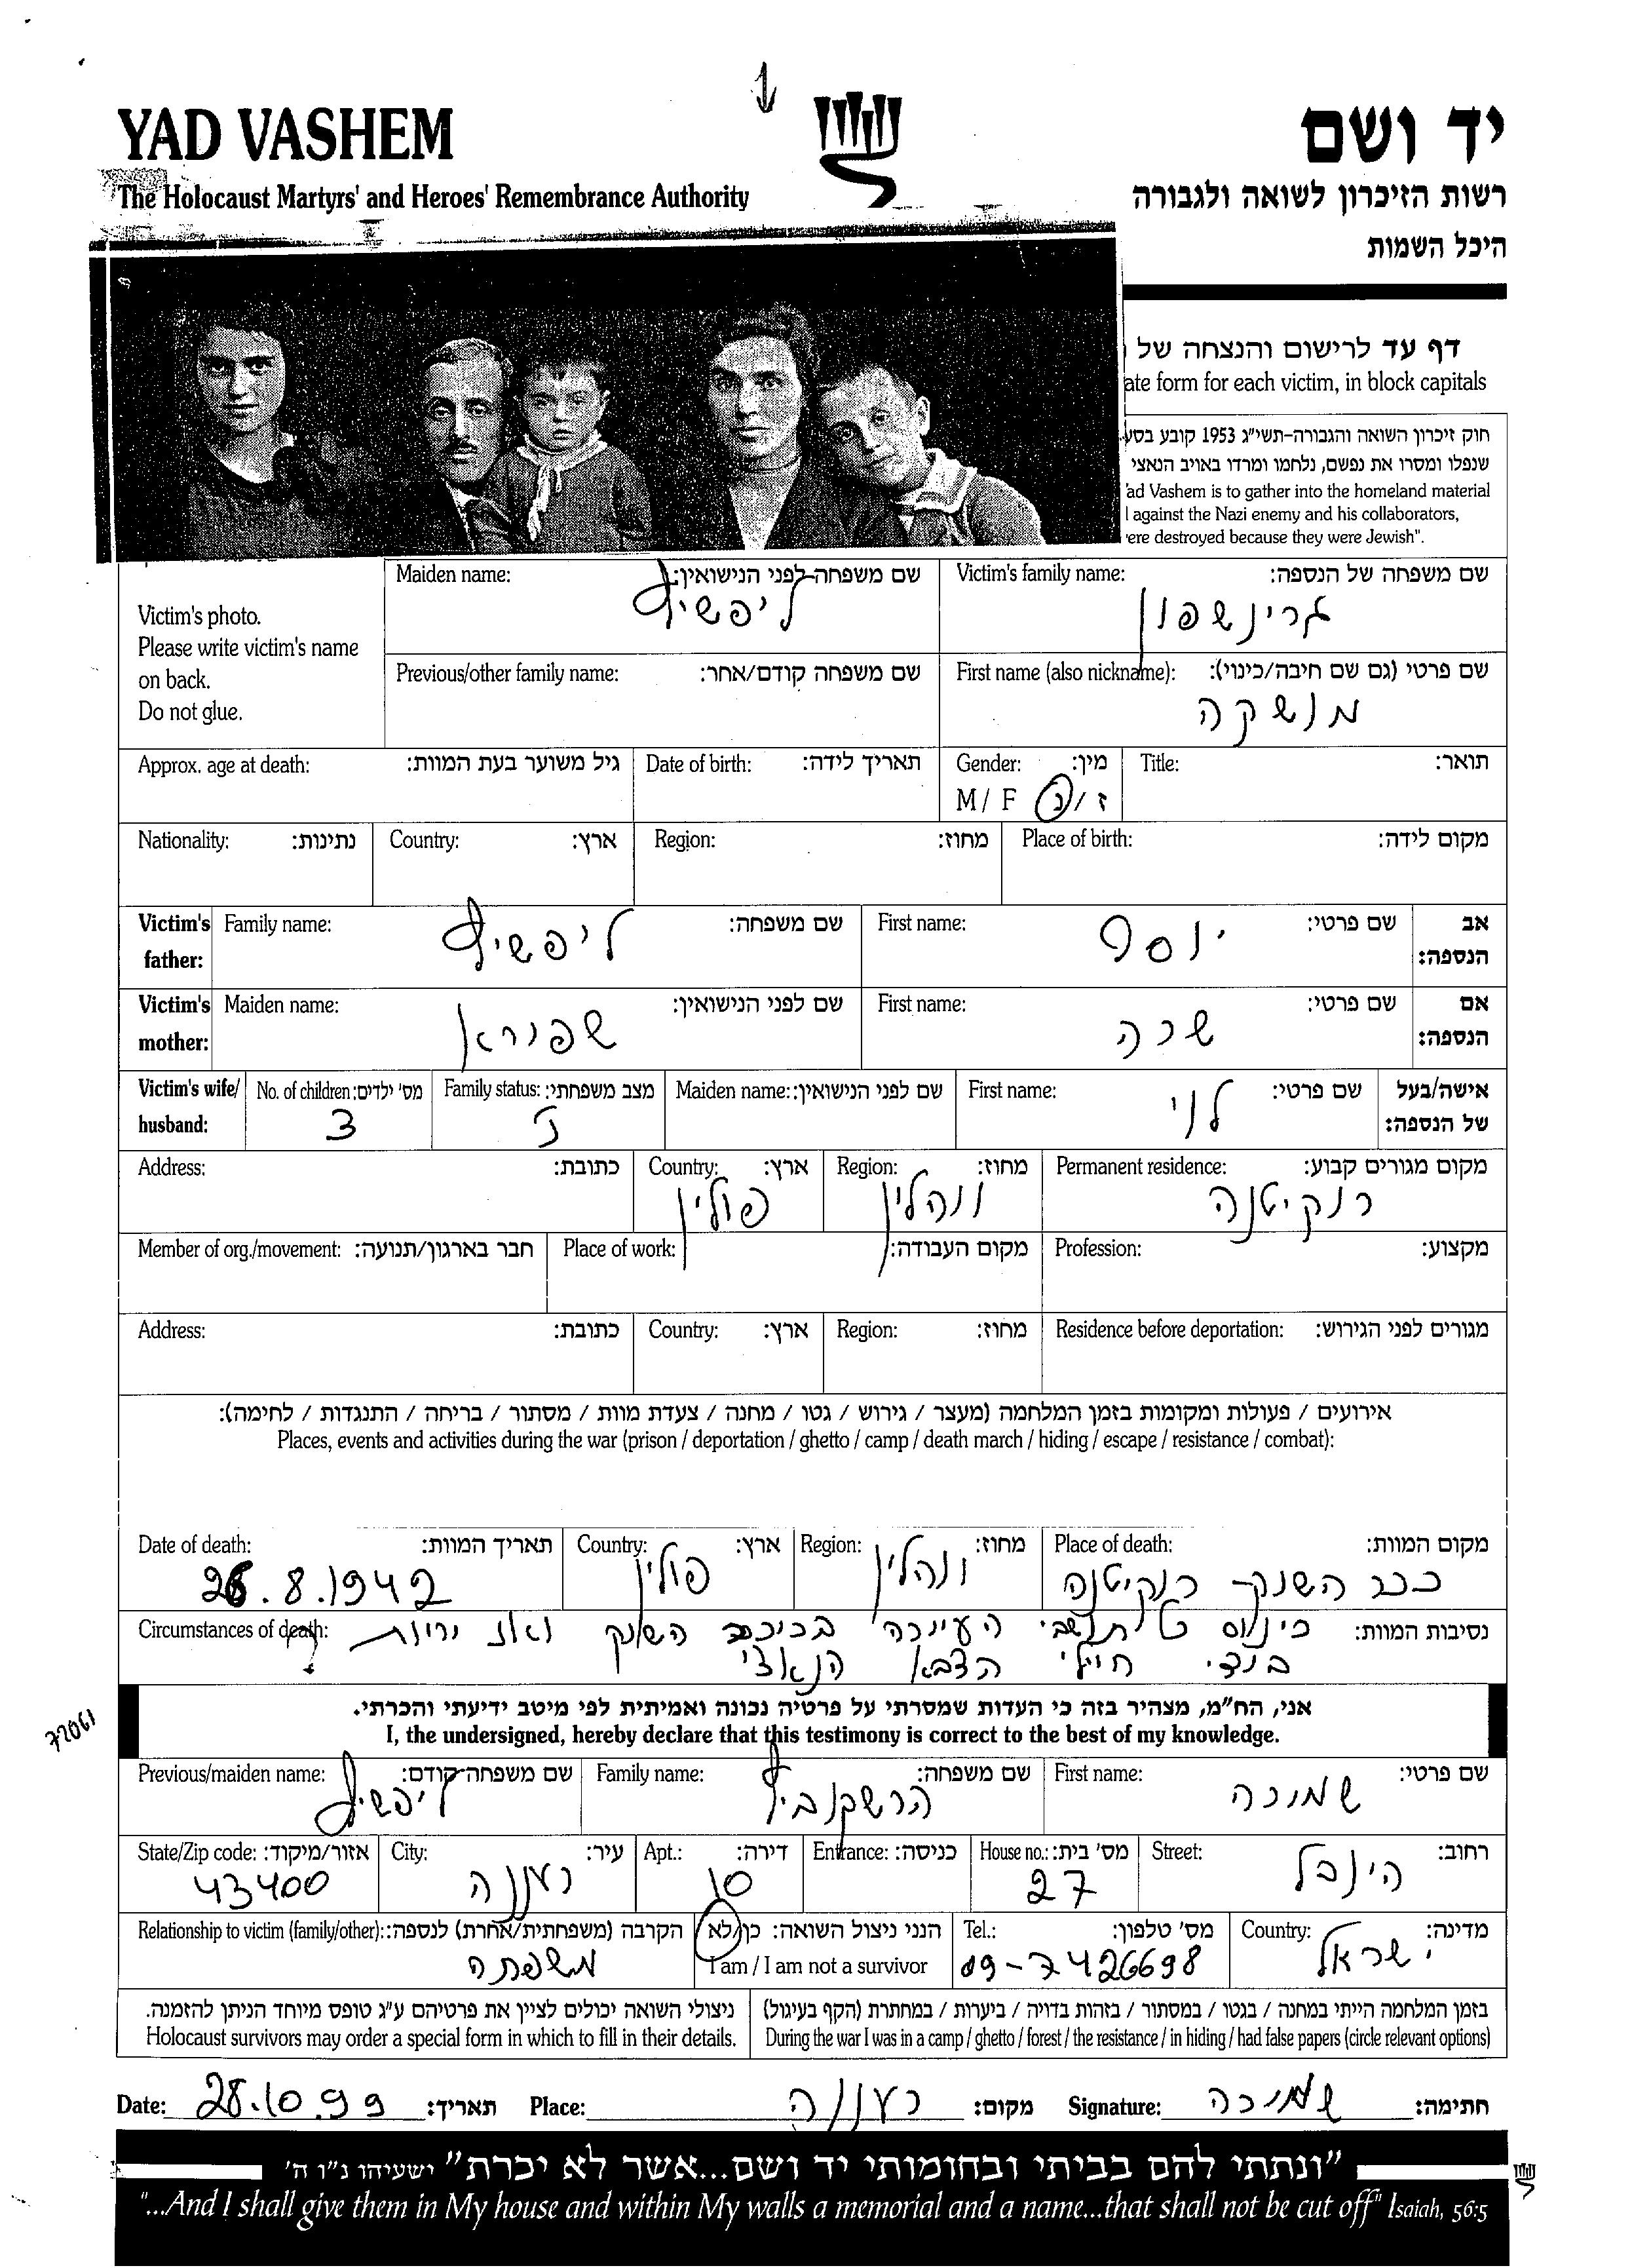 YAD VASHEM
יד ושם
The Holocaust Martyrs' and Heroes' Remembrance Authority
רשות הזיכרון לשואה ולגבורה
היכל השמות
דף עד לרישום והנצחה של
ate form for each victim, in block capitals
חוק זיכרון השואה והגבורה-תשי"ג 1953 קובע בסע
שנפלו ומסרו את נפשם, נלחמו ומרדו באויב הנאצי
ad Vashem is to gather into the homeland material
against the Nazi enemy and his collaborators,
ere destroyed because they were Jewish".
Victim's photo.
Please write victim's name
on back.
Do not glue.
Victim's family name: שם משפחה של הנספה:
גרינשפון
Maiden name: שם משפחה לפני הנישואין:
ליפשיץ
First name (also nickname): שם פרטי (גם שם חיבה/כינוי):
מנשקה
Previous/other family name: שם משפחה קודם/אחר:
Title: תואר:
Gender: מין:
M / F ז / נ
Date of birth: תאריך לידה:
Approx. age at death: גיל משוער בעת המוות:
Place of birth: מקום לידה:
Region: מחוז:
Country: ארץ:
Nationality: נתינות:
Victim's father: אב הנספה:
First name: שם פרטי:
יוסף
Family name: שם משפחה:
ליפשיץ
Victim's mother: אם הנספה:
First name: שם פרטי:
שרה
Maiden name: שם לפני הנישואין:
שפירא
Victim's wife/ husband: אישה/בעל של הנספה:
First name: שם פרטי:
לוי
Maiden name: שם לפני הנישואין:
Family status: מצב משפחתי:
נ
No. of children: מס' ילדים:
3
Permanent residence: מקום מגורים קבוע:
רוקיטנה
Region: מחוז:
ווהלין
Country: ארץ:
פולין
Address: כתובת:
Profession: מקצוע:
Place of work: מקום העבודה:
Member of org./movement: חבר בארגון/תנועה:
Residence before deportation: מגורים לפני הגירוש:
Region: מחוז:
Country: ארץ:
Address: כתובת:
אירועים / פעולות ומקומות בזמן המלחמה (מעצר / גירוש / גטו / מחנה / צעדת מוות / מסתור / בריחה / התנגדות / לחימה):
Places, events and activities during the war (prison / deportation / ghetto / camp / death march / hiding / escape / resistance / combat):
Place of death: מקום המוות:
ככר השוק- רוקיטנה
Region: מחוז:
ווהלין
Country: ארץ:
פולין
Date of death: תאריך המוות:
26.8.1942
Circumstances of death: נסיבות המוות:
כינוס כל תושבי העיירה בכיכר השוק ואז יריות
בידי חיילי הצבא הנאצי
אני, הח"מ, מצהיר בזה כי העדות שמסרתי על פרטיה נכונה ואמיתית לפי מיטב ידיעתי והכרתי.
I, the undersigned, hereby declare that this testimony is correct to the best of my knowledge.
72061
First name: שם פרטי:
שמירה
Family name: שם משפחה:
הרשקוביץ
Previous/maiden name: שם משפחה קודם:
ליפשיץ
Street: רחוב:
House no.: מס' בית:
27
Entrance: כניסה:
Apt.: דירה:
10
City: עיר:
רעננה
State/Zip code: אזור/מיקוד:
43400
Country: מדינה:
ישראל
Tel.: מס' טלפון:
09-7426698
הנני ניצול השואה: כן/לא
I am / I am not a survivor
Relationship to victim (family/other): הקרבה (משפחתית/אחרת) לנספה:
משפחה
בזמן המלחמה הייתי במחנה / בגטו / במסתור / בזהות בדויה / ביערות / במחתרת (הקף בעיגול)
During the war I was in a camp / ghetto / forest / the resistance / in hiding / had false papers (circle relevant options)
ניצולי השואה יכולים לציין את פרטיהם ע"ג טופס מיוחד הניתן להזמנה.
Holocaust survivors may order a special form in which to fill in their details.
Date: 28.10.99 תאריך:
Place: רעננה מקום:
Signature: שמירה חתימה:
"ונתתי להם בביתי ובחומותי יד ושם...אשר לא יכרת" ישעיהו נ"ו ה'
"...And I shall give them in My house and within My walls a memorial and a name...that shall not be cut off" Isaiah, 56:5